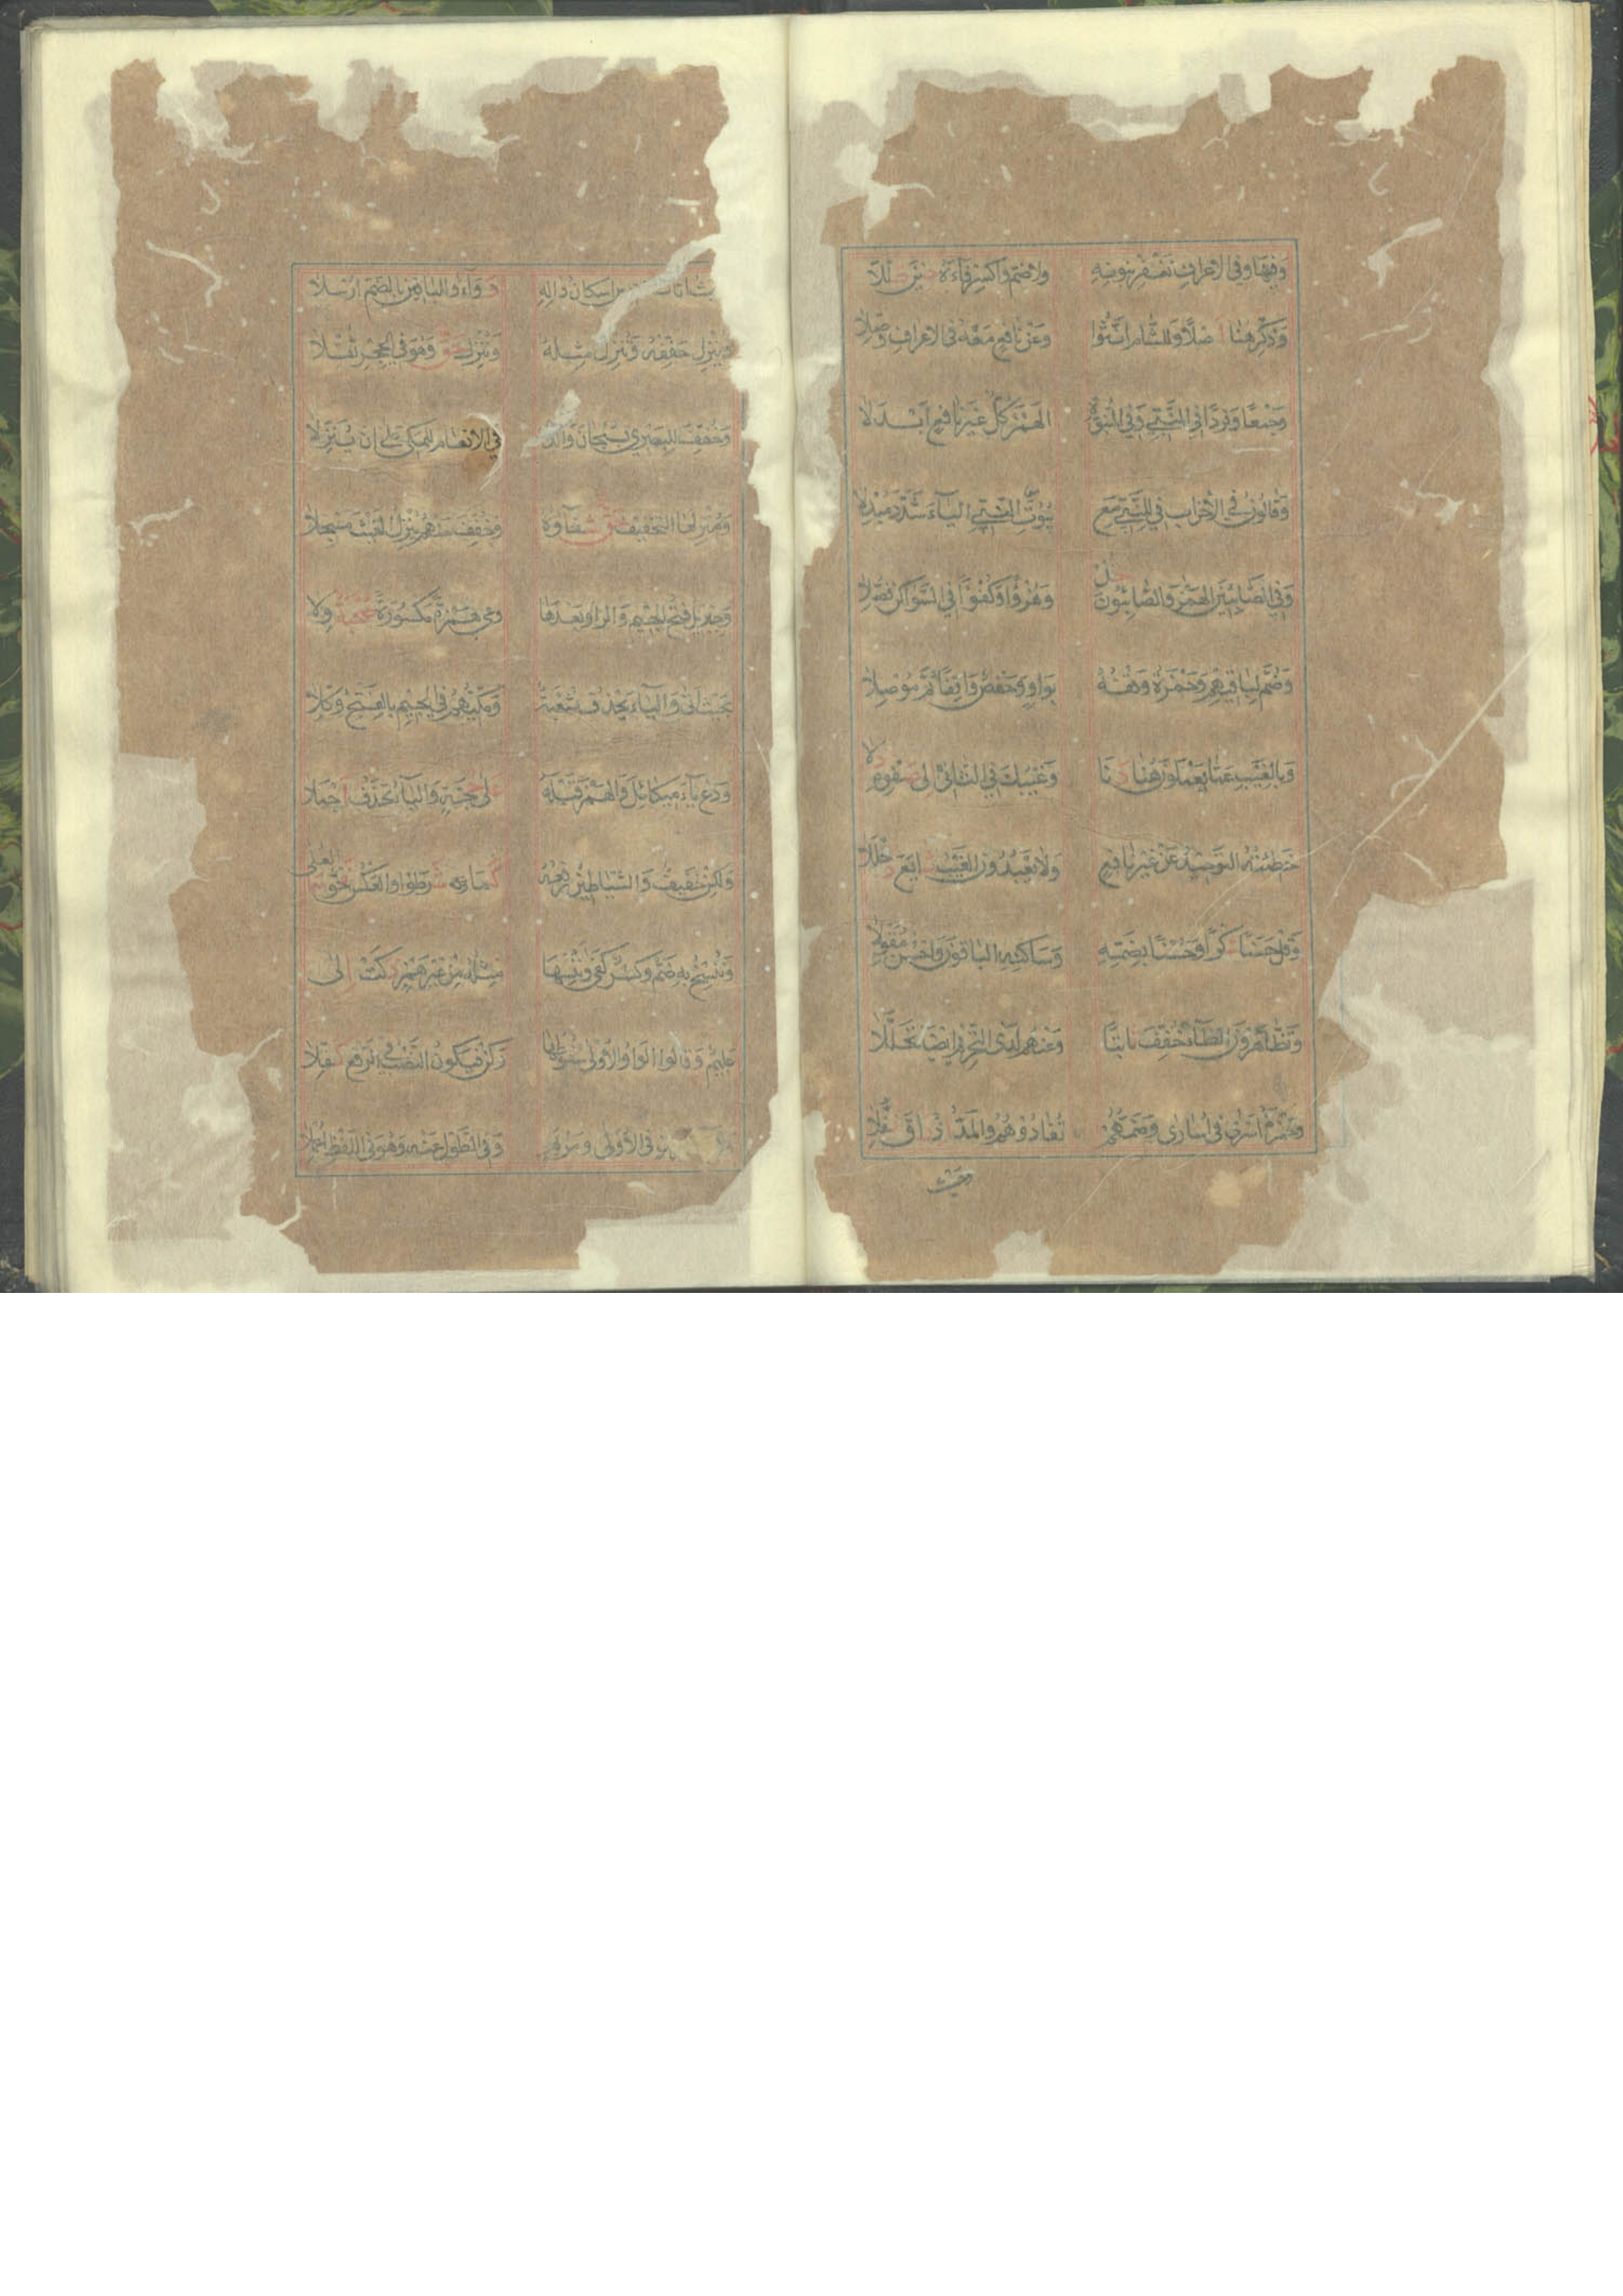 وَفِيهَا وَفِي الأَعْرَافِ نَغْفِرْ بِنُونِهِ وَلاَ ضَمَّ وَاكْسِرْ فَاءَهُ حِينَ ظَلَّلاَ
وَذَكِّرْ هُنَا أَصْلاً وَلِلشَّامِ أَنَّثُوا وَعَنْ نَافِعٍ مَعْهُ فِي الأَعْرَافِ وُصِّلاَ
وَجَمْعًا وَفَرْدًا فِي النَّبِيِّ وَفِي النُّبُوَّةِ الْهَمْزَ كُلٌّ غَيْرَ نَافِعٍ ابْدَلاَ
وَقَالُونُ فِي الأَحْزَابِ فِي لِلنَّبِيِّ مَعْ بُيُوتَ النَّبِيِّ الْيَاءَ شَدَّدَ مُبْدِلاَ
وَفِي الصَّابِئِينَ الْهَمْزُ وَالصَّابِئُونَ خُذْ وَهُزْؤًا وَكُفْؤًا فِي السَّوَاكِنِ فُصِّلاَ
وَضُمَّ لِبَاقِيهِمْ وَحَمْزَةُ وَقْفُهُ بِوَاوٍ وَحَفْصٌ وَاقِفًا ثُمَّ مُوصِلاَ
وَبِالْغَيْبِ عَمَّا يَعْمَلُونَ هُنَا دَنَا وَغَيْبُكَ فِي الثَّانِي إِلَى صَفْوِهِ دَلاَ
خَطِيئَتُهُ التَّوْحِيدُ عَنْ غَيْرِ نَافِعٍ وَلاَ يَعْبُدُونَ الْغَيْبُ شَايَعَ دُخْلُلاَ
وَقُلْ حَسَنًا شُكْرًا وَحُسْنًا بِضَمِّهِ وَسَاكِنِهِ الْبَاقُونَ وَاحْسِنْ مُقَوِّلاَ
وَتَظَّاهَرُونَ الظَّاءُ خُفِّفَ ثَابِتًا وَعَنْهُمْ لَدَى التَّحْرِيمِ أَيْضًا تَحَلَّلاَ
وَحَمْزَةُ أَسْرَى فِي أُسَارَى وَضَمُّهُمْ تُفَادُوهُمُو وَالْمَدُّ إِذْ رَاقَ نُفِّلاَ
وحيث
أَتَاكَ إِسْكَانُ دَالِهِ دَوَاءٌ وَلِلْبَاقِينَ بِالضَّمِّ أُرْسِلاَ
وَيُنْزِلُ خَفِّفْهُ وَتُنْزِلُ مِثْلُهُ وَنُنْزِلُ حَقٌّ وَهْوَ فِي الْحِجْرِ ثُقِّلاَ
وَخُفِّفَ لِلْبَصْرِي بِسُبْحَانَ وَالَّذِي فِي الأَنْعَامِ لِلْمَكِّي عَلَى أَنْ يُنَزِّلاَ
وَمُنْزِلُهَا التَّخْفِيفُ حَقٌّ شِفَاؤُهُ وَخُفِّفَ عَنْهُمْ يُنْزِلُ الْغَيْثَ مُسْجَلاَ
وَجِبْرِيلَ فَتْحُ الْجِيمِ وَالرَّا وَبَعْدَهَا وَعَى هَمْزَةً مَكْسُورَةً صُحْبَةٌ وِلاَ
بِحَيْثُ أَتَى وَالْيَاءَ يَحْذِفُ شُعْبَةٌ وَمَكِّيُّهُمْ فِي الْجِيمِ بِالْفَتْحِ وُكِّلاَ
وَدَعْ يَاءَ مِيكَائِيلَ وَالْهَمْزَ قَبْلَهُ عَلَى حُجَّةٍ وَالْيَاءُ تُحْذَفُ أَجْمَلاَ
وَلَكِنْ خَفِيفٌ وَالشَّيَاطِينُ رَفْعُهُ كَمَا شَرَطُوا وَالْعَكْسُ نَحْوٌ سَمَا الْعُلَى
وَنَنْسَخْ بِهِ ضَمٌّ وَكَسْرٌ كَفَى وَنُنْسِهَا مِثْلُهُ مِنْ غَيْرِ هَمْزٍ ذَكَتْ إِلَى
عَلِيمٌ وَقَالُوا الْوَاوُ الأُولَى سُقُوطُهَا وَكُنْ فَيَكُونُ النَّصْبُ فِي الرَّفْعِ كُفِّلاَ
فِي الأُولَى وَمَرْيَمٍ وَفِي الطَّوْلِ عَنْهُ وَهْوَ بِاللَّفْظِ أُعْمِلاَ